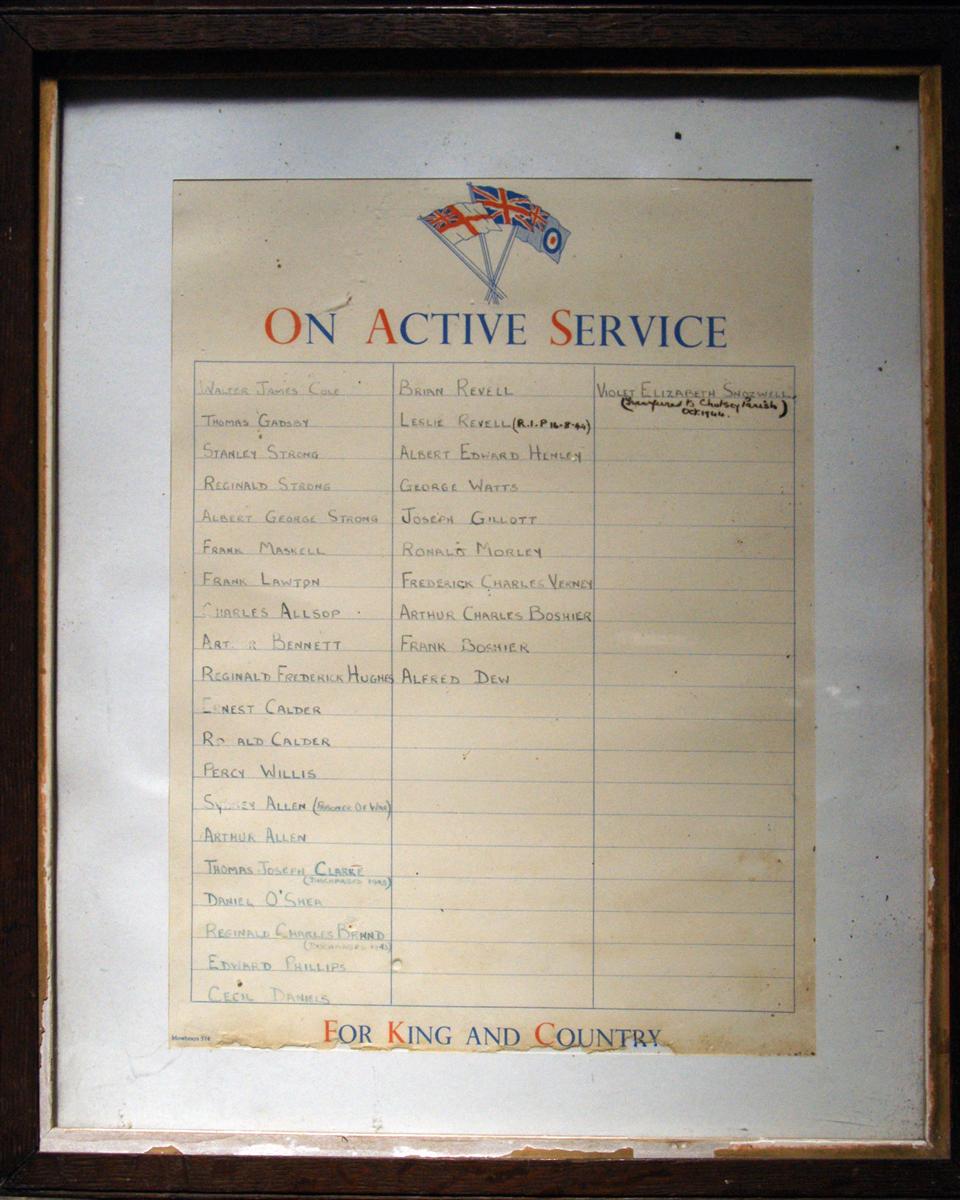 ON ACTIVE SERVICE
WALTER JAMES COLE
THOMAS GADSBY
STANLEY STRONG
REGINALD STRONG
ALBERT GEORGE STRONG
FRANK MASKELL
FRANK LAWTON
CHARLES ALLSOP
ART R BENNETT
REGINALD FREDERICK HUGHES
ERNEST CALDER
RO ALD CALDER
PERCY WILLIS
SYDNEY ALLEN (PRISONER OF WAR)
ARTHUR ALLEN
THOMAS JOSEPH CLARKE
(DISCHARGED 1943)
DANIEL O'SHEA
REGINALD CHARLES BRAND
(DISCHARGED 1943)
EDWARD PHILLIPS
CECIL DANIELS
BRIAN REVELL
LESLIE REVELL (R.I.P 16-8-44)
ALBERT EDWARD HENLEY
GEORGE WATTS
JOSEPH GILLOTT
RONALD MORLEY
FREDERICK CHARLES VERNEY
ARTHUR CHARLES BOSHIER
FRANK BOSHIER
ALFRED DEW
VIOLET ELIZABETH SNOZWELL
(Transferred to Cholsey Parish)
Oct 1944.
FOR KING AND COUNTRY
Mowbrays 574